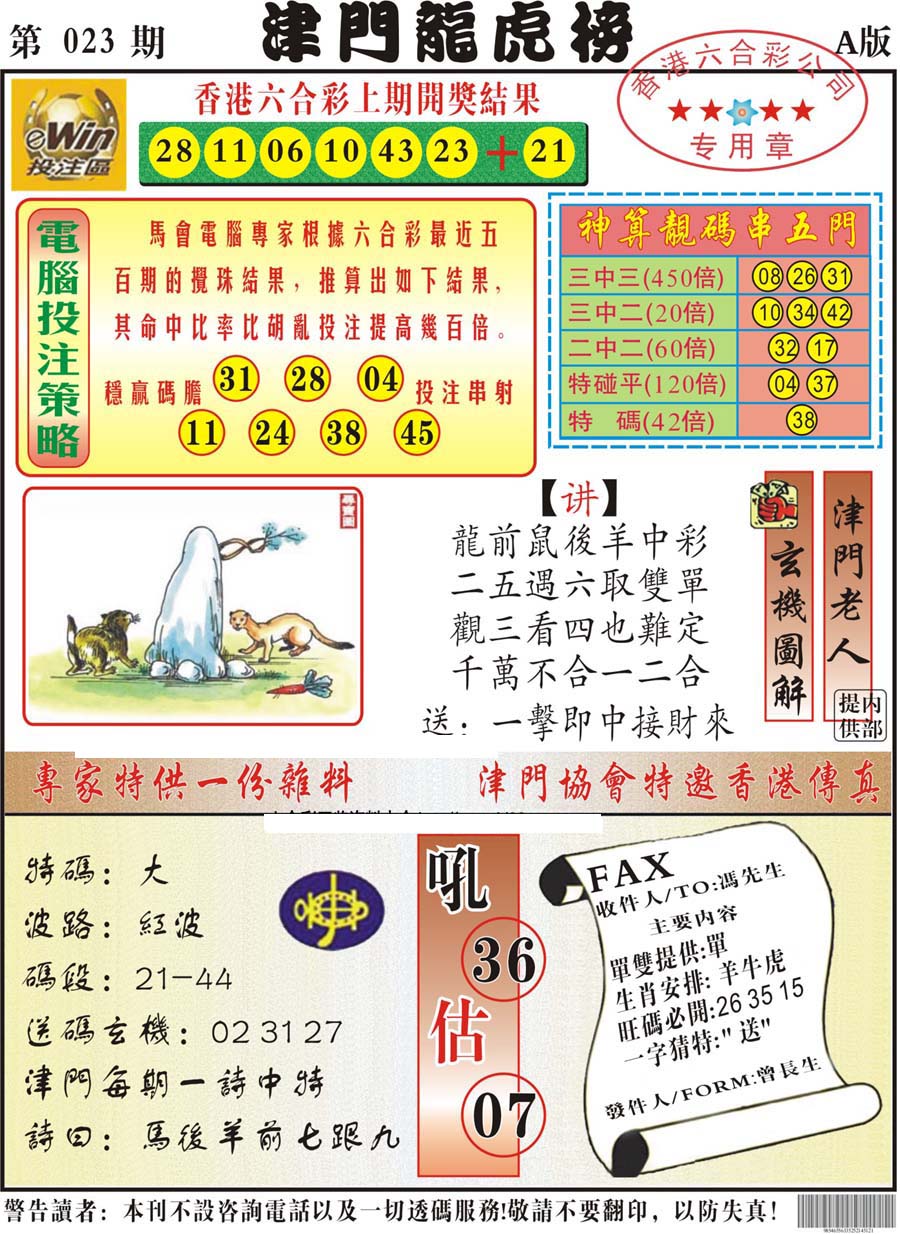 第 023 期
津門龍虎榜
A版
香港六合彩公司
专用章
eWin
投注區
香港六合彩上期開獎結果
28 11 06 10 43 23 + 21
電腦投注策略
馬會電腦專家根據六合彩最近五
百期的攪珠結果，推算出如下結果，
其命中比率比胡亂投注提高幾百倍。
穩贏碼膽 31 28 04 投注串射
11 24 38 45
神算靚碼串五門
三中三(450倍) 08 26 31
三中二(20倍) 10 34 42
二中二(60倍) 32 17
特碰平(120倍) 04 37
特 碼(42倍) 38
【讲】
龍前鼠後羊中彩
二五遇六取雙單
觀三看四也難定
千萬不合一二合
送：一擊即中接財來
玄機圖解
津門老人
内部提供
專家特供一份雜料
津門協會特邀香港傳真
特碼：大
波路：紅波
碼段：21-44
送碼玄機：02 31 27
津門每期一詩中特
詩曰：馬後羊前七跟九
吼
36
估
07
FAX
收件人/TO:馮先生
主要内容
單雙提供:單
生肖安排: 羊牛虎
旺碼必開:26 35 15
一字猜特:"送"
發件人/FORM:曾長生
警告讀者：本刊不設咨詢電話以及一切透碼服務!敬請不要翻印，以防失真！